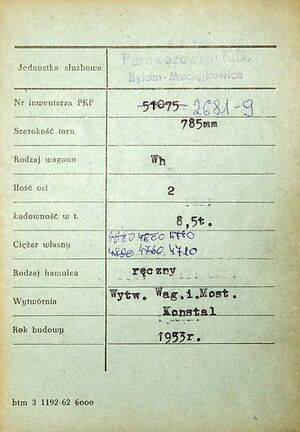 Jednostka służbowa
Parowozownia K.D.
Bytom-Maciejkowice
Nr inwentarza PKP 51075 2681-9
Szerokość toru 785mm
Rodzaj wagonu Wh
Ilość osi 2
Ładowność w t. 8,5t.
Ciężar własny
4760 4710
Rodzaj hamulca ręczny
Wytwórnia Wytw. Wag.i.Most.
Konstal
Rok budowy 1953r.
btm 3 1192-62 6000